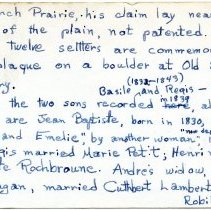 nch Prairie, his claim lay nea
of the plain, not patented.
twelve settlers are commemo
plaque on a boulder at Old S
ry.
(1832-1843)
Basile and Regis -
in 1839
the two sons recorded here, a
are Jean Baptiste, born in 1830,
and Emelie," by another woman."
gis married Marie Petit; Henri
te Rochbroune. Andre's widow,
gan, married Cuthbert Lambert
Robi